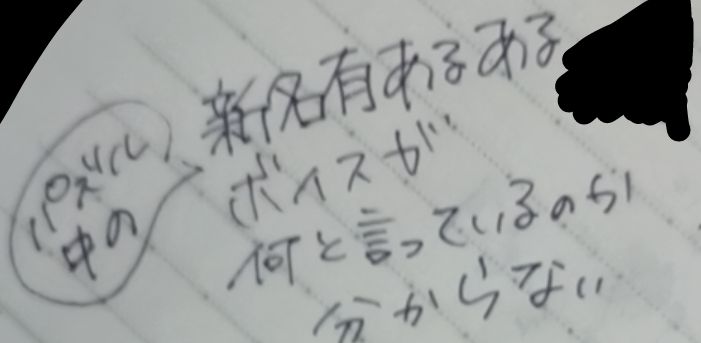 新名有あるある
パズル
中の
ボイスが
何と言っているのか
分からない